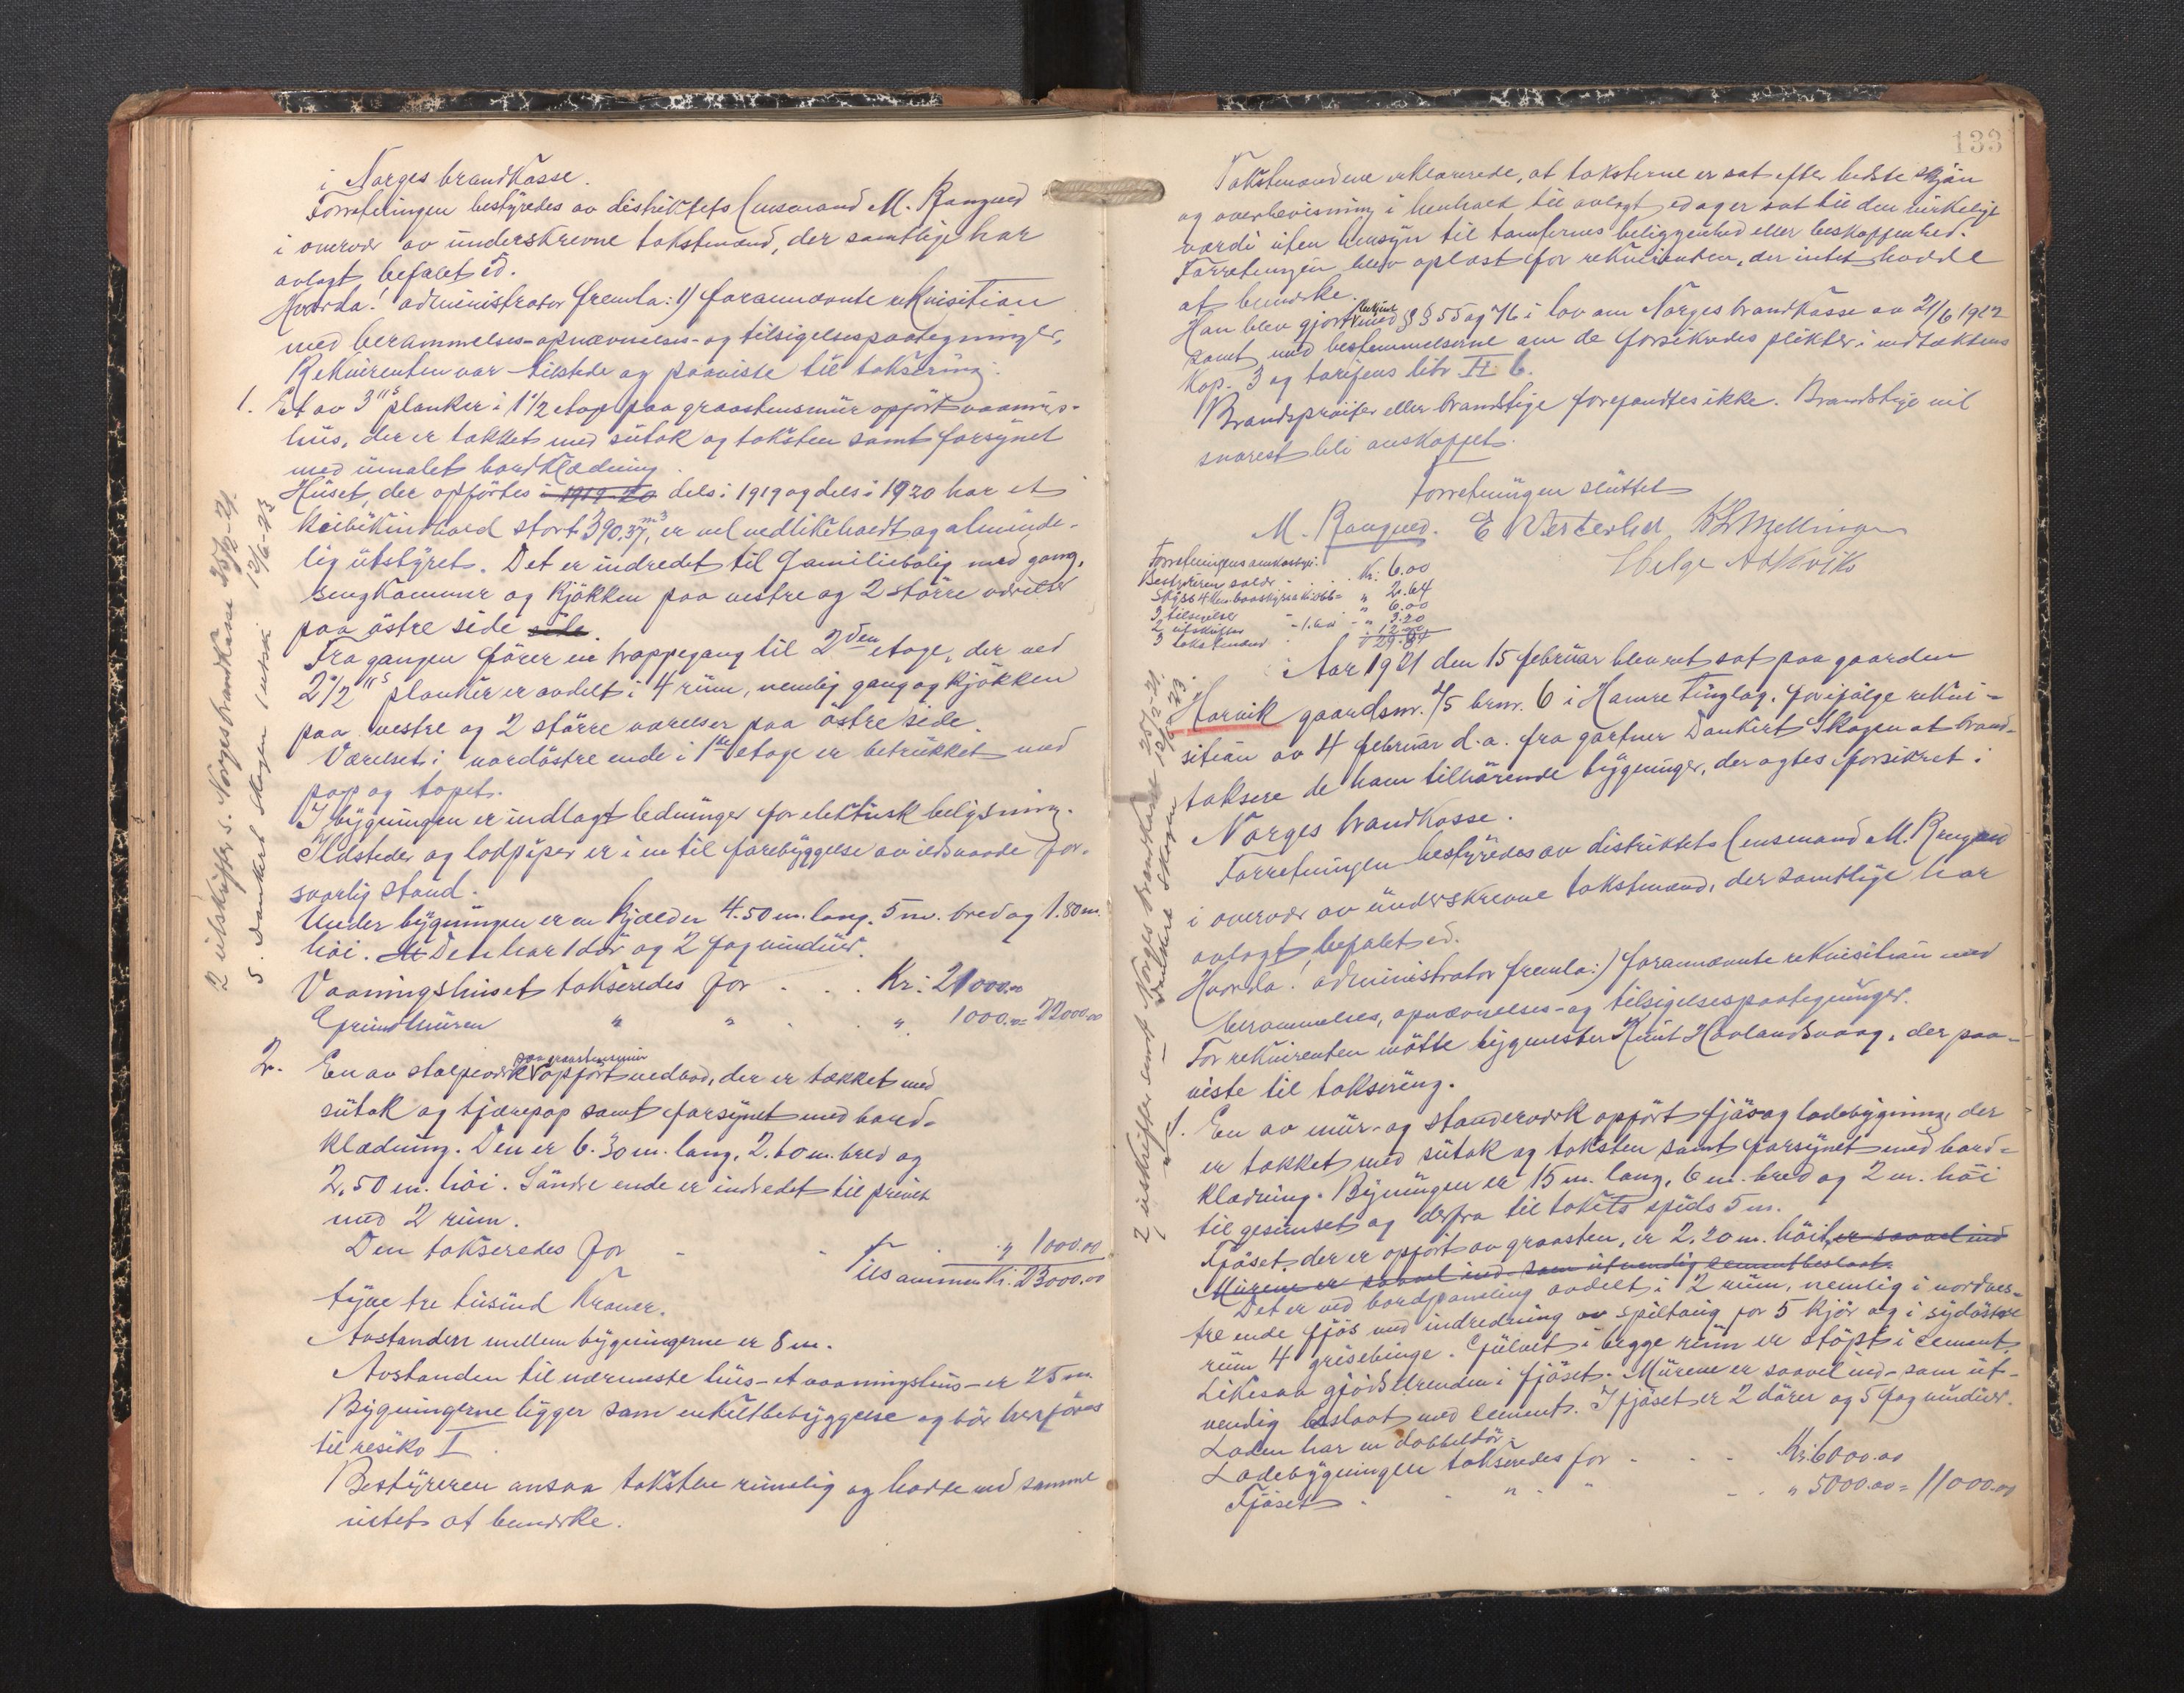 i Norges brandkasse.
Forretningen bestyredes av distriktets lensmand M. Rongved
i overvær av underskrevne takstmænd, der samtlige har
avlagt befalet ed.
Hvorda! administrator fremla: 1) forannævnte rekvisition
med berammelses- opnævnelses- og tilsigelsespaategninger.
Rekvirenten var tilstede og paaviste til taksering:
1. Et av 3"s planker i 1 1/2 etage paa graastensmur opført vaanings-
hus, der er tækket med sutak og taksten samt forsynet
med umalet bordklædning.
Huset, der opførtes i 1919-20 dels i 1919 og dels i 1920 har et
kubikindhold stort 390,37 m3, er vel vedlikeholdt og alminde-
lig utstyret. Det er indredet til familiebolig med gang,
sengkammer og kjøkken paa vestre og 2 større værelser
paa østre side side.
Fra gangen fører en trappegang til 2den etage, der ved
2 1/2"s planker er avdelt i 4 rum, nemlig gang og kjøkken
paa vestre og 2 større værelser paa østre side.
Værelset i nordøstre ende i 1ste etage er betrukket med
pap og tapet.
I bygningen er indlagt ledninger for elektrisk belysning.
Ildsteder og lodpiper er i en til forebyggelse av ildsvaade for-
svarlig stand.
Under bygningen er en kjælder 4.50 m. lang, 5 m. bred og 1.80 m.
høi. Den har 1 dør og 2 fag vinduer.
Vaaningshuset takseredes for . . . Kr: 21000.00
Grundmuren " " . . " 1000.00 = 22000.00
2. En av stolpeverk paa graastensmur opført vedbod, der er tækket med
sutak og tjærepap samt forsynet med bord-
klædning. Den er 6.30 m. lang, 2.60 m. bred og
2,50 m. høi. Søndre ende er indredet til privet
med 2 rum.
Den takseredes for - - - " 1000.00
Tilsammen Kr. 23000.00
tyve tre tusind Kroner.
Avstanden mellem bygningerne er 8 m.
Avstanden til nærmeste hus - et vaaningshus - er 25 m.
Bygningerne ligger som enkeltbebyggelse og bør henføres
til resiko I.
Bestyreren ansaa taksten rimelig og hadde ved samme
intet at bemerke.
2 utskrifter s. Norges brandkasse 25/2-21.
S. Dankert Skagen 1 utskr. 12/6-23
133
Takstmændene erklærede, at taksterne er sat efter bedste skjøn
og overbevisning i henhold til avlagt ed og er sat til den virkelige
værdi uten hensyn til tomternes beliggenhed eller beskaffenhed.
Forretningen blev oplæst for rekvirenten, der intet hadde
at bemerke.
Han blev gjort bekjent med §§ 55 og 76 i lov om Norges brandkasse av 21/6 1912
samt med bestemmelserne om de forsikredes plikter i indtaktens
Kap. 3 og tarifens litr. II b.
Brandsprøiter eller brandstige forefandtes ikke. Brandstige vil
snarest bli anskaffet.
Forretningen sluttet
M. Rongved. E Vesterlid
Helge Askvik
Forretningens omkostn:
Bestyreren salær . . . Kr: 6.00
" 2.64
3 tilsigelser " 6.00
2 utskrifter - 1.60 - " 3.20
3 takstmænd " 12.00
29.84
Aar 1921 den 15 februar blev ret sat paa gaarden
Horvik gaardsnr. 75 brnr. 6 i Hamre tinglag, for ifølge rekvi-
sition av 4 februar d.a. fra gartner Dankert Skagen at brand-
taksere de ham tilhørende bygninger, der agtes forsikret i
Norges brandkasse.
Forretningen bestyredes av distriktets lensmand M. Rongved
i overvær av underskrevne takstmænd, der samtlige har
avlagt befalet ed.
Hvorda! administrator fremla: 1) forannævnte rekvisition med
berammelses, opnævnelses- og tilsigelsespaategninger.
For rekvirenten møtte bygmester Knut Hovlandsvaag, der paa-
viste til taksering.
1. En av mur- og stenderverk opført fjøs og ladebygning, der
er tækket med sutak og taksten samt forsynet med bord-
klædning. Bygningen er 15 m. lang, 6 m. bred og 2 m. høi
til gesimset og derfra til takets spids 5 m.
Fjøset, der er opført av graasten, er 2.20 m. høit, er saavel ind
Murene er saavel ind som utvendig cementbeslaat.
Det er ved bordpaneling avdelt i 2 rum, nemlig i nordves-
tre ende fjøs med indredning av spiltaug for 5 kjør og i sydøstre
rum 4 grisebinge. Gulvet i begge rum er støpt i cement.
Likesaa gjødselrenden i fjøset. Murene er saavel ind- som ut-
vendig beslaat med cement. I fjøset er 2 dører og 5 fag vinduer.
Laden har en dobbeltdør.
Ladebygningen takseredes for - - - Kr: 6000.00
Fjøset . . " " - - " 5000.00 = 11000.00
2 utskrifter sendt Norges brandkasse 25/2-21.
1 - " - Dankert Skagen 12/6-23.